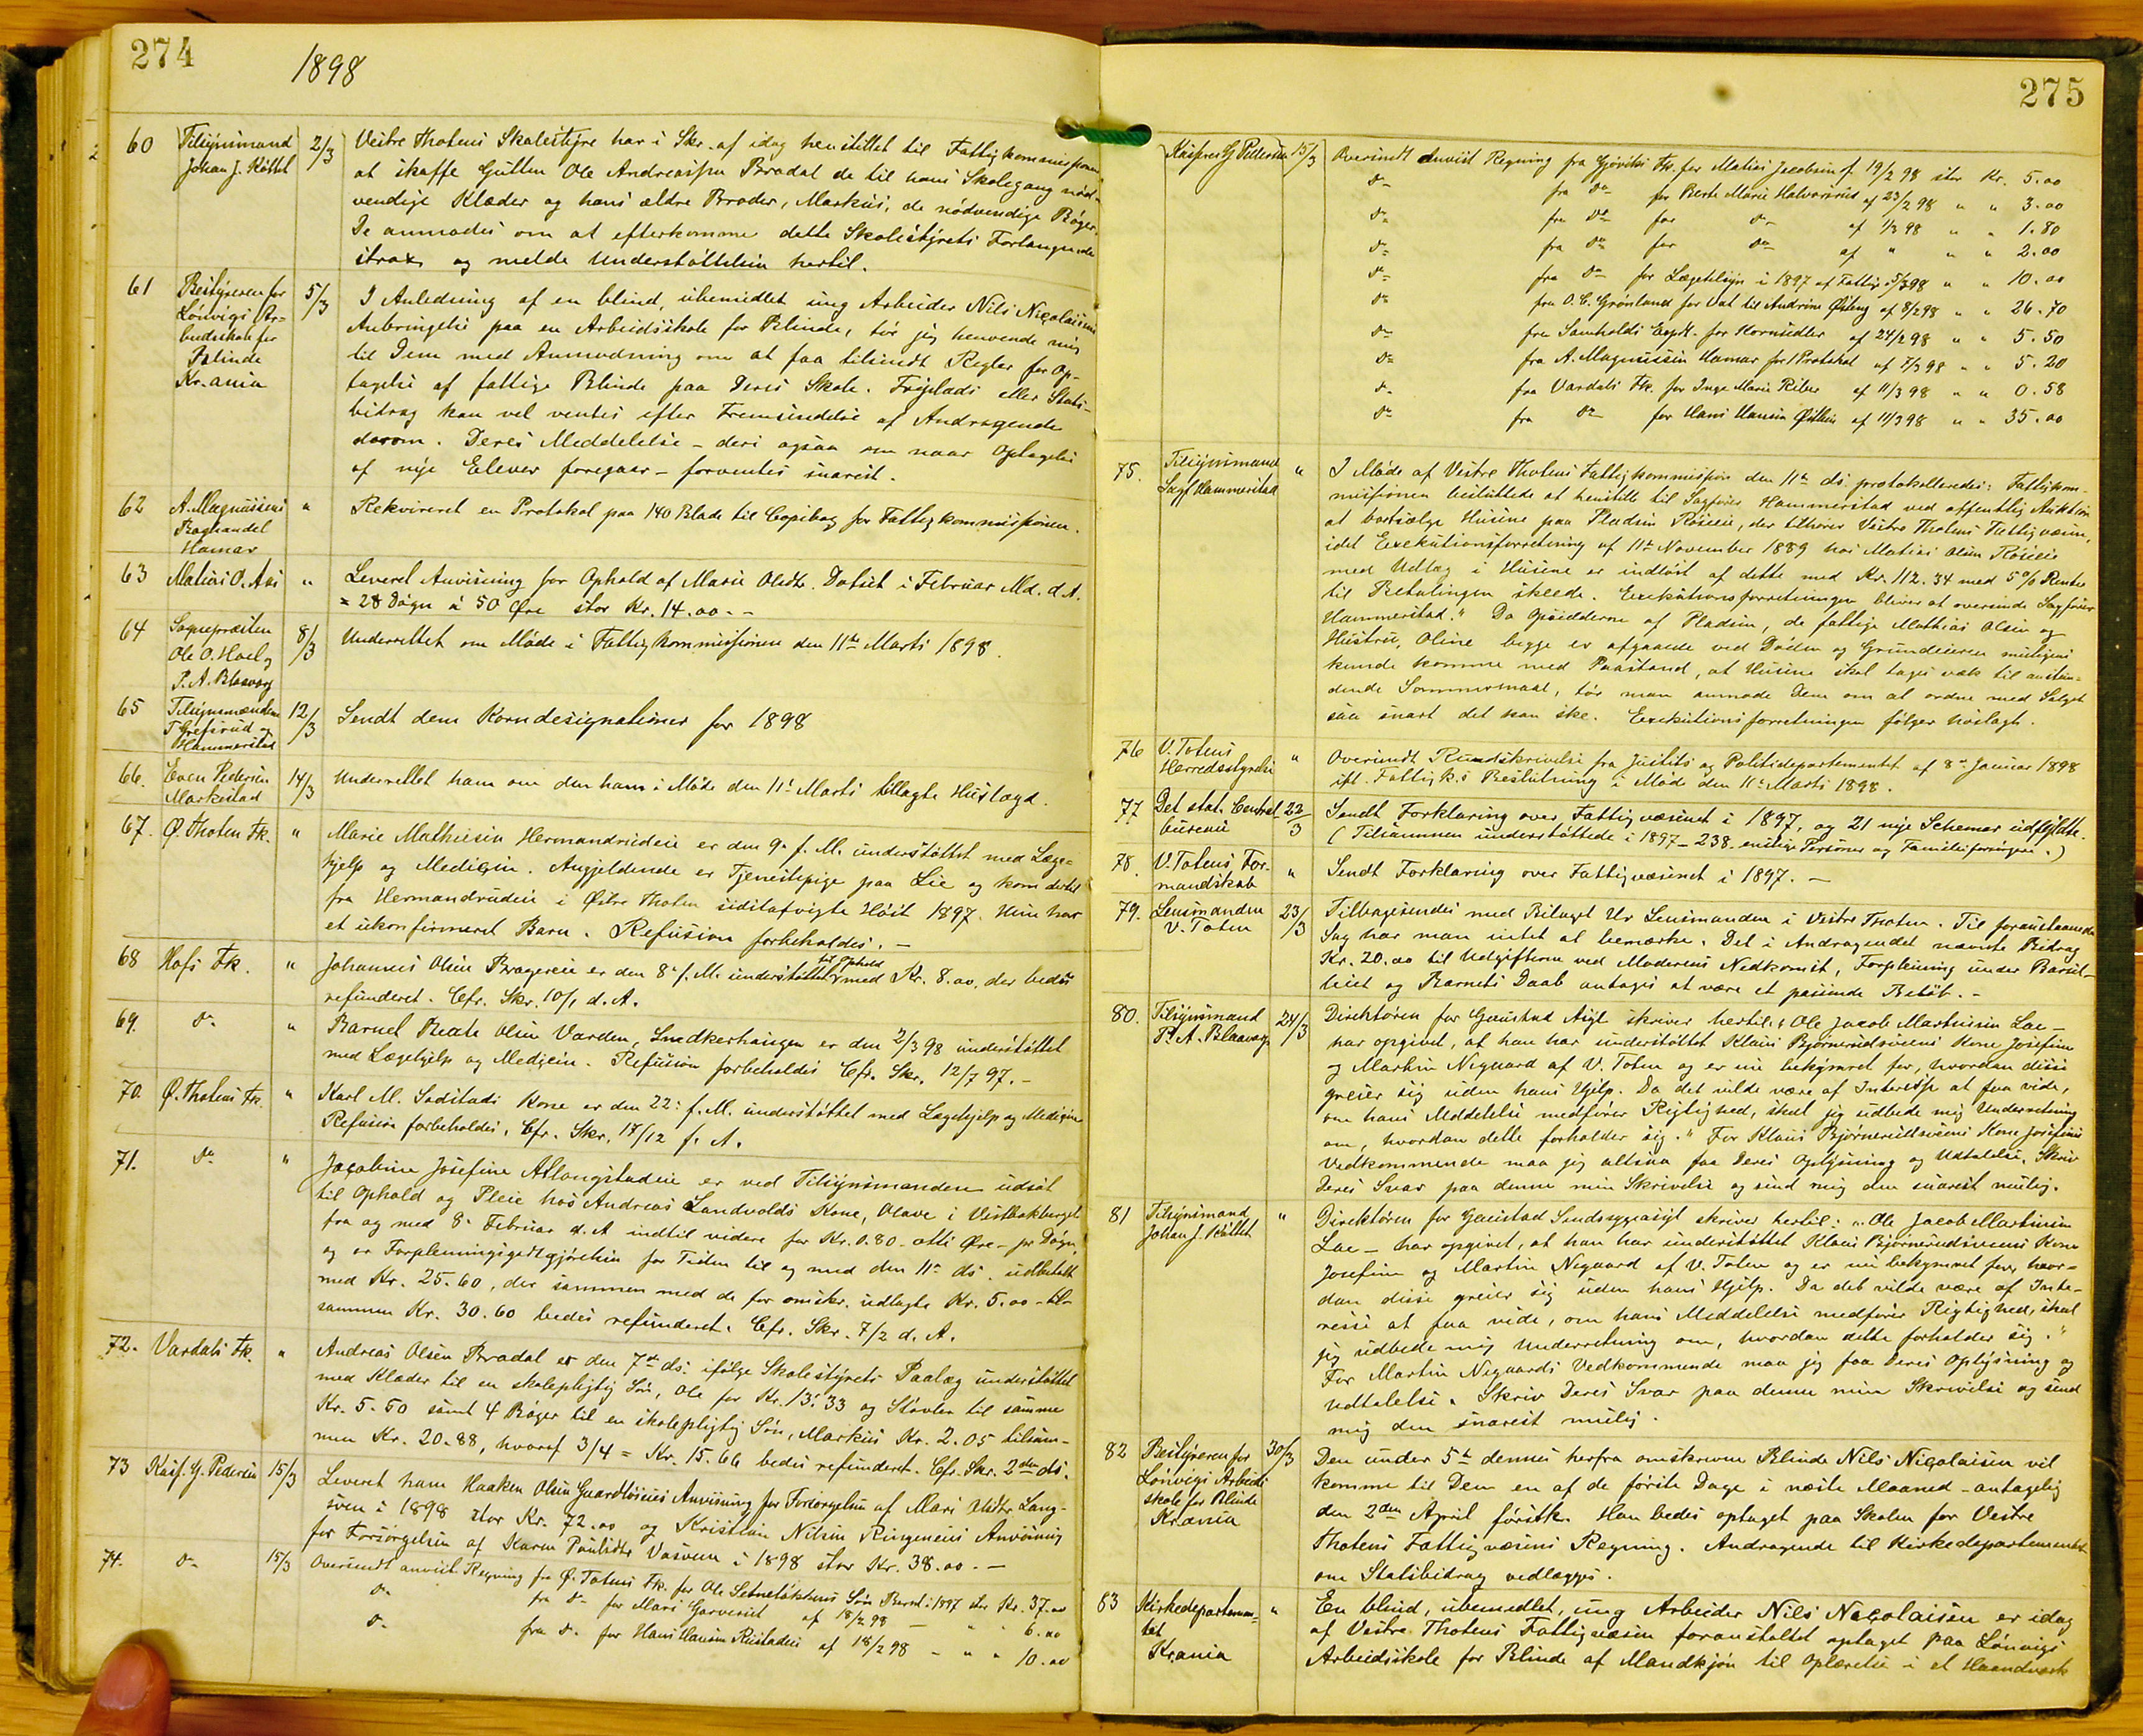 274
1898
60 Tilsynsmand 2/3 Vestre Thotens Skolestyre har i Skr. af idag henstillet til Fattigkommissionen
Johan J. Köllet at skaffe Gutten Ole Andreassen Bradal de til hans Skolegang nød-
vendige Klæder og hans ældre Broder, Markus, de nødvendige Bøger.
De anmodes om at efterkomme dette Skolestyrets Forlangende
strax og melde Understøttelsen hertil.
61 Bestyreren for 5/3 I Anledning af en blind, ubemidlet ung Arbeider Nils Nicolaisens
Lönvigs Ar- Anbringelse paa en Arbeidsskole for Blinde, tör jeg henvende mig
beidsskole for til Dem med Anmodning om at faa tilsendt Regler for Op-
Blinde tagelse af fattige Blinde paa Deres Skole. Friplads eller Stats-
Kr.ania bidrag kan vel ventes efter Fremsendelse af Andragende
derom. Deres Meddelelse – deri ogsaa om naar Optagelse
af nye Elever foregaar – forventes snarest.
62 A. Magnussens " Rekvireret en Protokol paa 140 Blade til Copibog for Fattigkommissionen.
Boghandel
Hamar
63 Matias O. Aas " Leveret Anvisning for Ophold af Marie Olsdtr. Dotset i Februar Md. d.A.
= 28 Døgn á 50 Øre stor Kr. 14.00. –
64 Sognepræsten 8/3 Underrettet om Møde i Fattigkommissionen den 11te Marts 1898.
Ole O. Hoel og
P. A. Blaavarg
65 Tilsynsmændene 12/3 Sendt dem Korndesignationer for 1898
T Grefsrud og
Hammerstad
66. Even Pedersen 14/3 Underrettet ham om den ham i Møde den 11te Marts tillagte Huslægd.
Markestad
67. Ø. Thoten Fk. " Marie Mathiesen Hermandrudeie er den 9. f. M. understøttet med Læge-
hjelp og Medicin. Angjeldende er Tjenestepige paa Lie og kom dertil
fra Hermandrudeie i Østre Thoten sidstafvigte Høst 1897. Hun har
et ukonfirmeret Barn. Refusion forbeholdes. –
68 Hofs Fk. " Johannes Olsen Bragereie er den 8. f. M. understøttet til Ophold med Kr. 8.00, der bedes
refunderet. Cfr. Skr. 10/1 d. A.
69. do " Barnet Beate Olsen Varden, Snedkerhaugen er den 2/3 98 understøttet
med Lægehjelp og Medicin. Refusion forbeholdes Cfr. Skr. 12/7 97. –
70. Ø. Thotens Fk. " Karl M. Sodstads Kone er den 22. f. M. understøttet med Lægehjelp og Medicin
Refusion forbeholdes. Cfr. Skr. 18/12 f. A.
71. do " Jacobine Josefine Allangstadeie er ved Tilsynsmanden udsat
til Ophold og Pleie hos Andreas Landvolds Kone, Olave i Vestbakberget
fra og med 8. Februar d. A indtil videre for Kr. 0.80 – otti Øre – pr Døgn,
og er Forpleiningsgodtgjørelsen for Tiden til og med den 11te ds. udbetalt
med Kr. 25.60, der sammen med de for omskr. udlagte Kr. 5.00 – til-
sammen Kr. 30.60 bedes refunderet. Cfr. Skr. 7/2 d. A.
72. Vardals Fk. " Andreas Olsen Bradal er den 7de ds. ifølge Skolestyrets Paalæg understøttet
med Klæder til en skolepligtig Søn, Ole for Kr. 13.33 og Støvler til samme
Kr. 5.50 samt 4 Bøger til en skolepligtig Søn, Markus Kr. 2.05 tilsam-
men Kr. 20.88, hvoraf 3/4 = Kr. 15.66 bedes refunderet. Cfr. Skr. 2den ds.
73 Kasf. G. Pedersen 15/3 Leveret ham Haaken Olsen Guardløseies Anvisning for Forsørgelsen af Mari Olsdtr. Lang-
sven i 1898 stor Kr. 72.00 og Kristian Nilsen Ringeneies Anvisning
for Forsørgelsen af Karen Paulsdtr Vasveen i 1898 stor Kr. 38.00. –
74. do 15/3 Oversendt anvist Regning fra Ø. Totens Fk. for Ole Søn Bernt i 1897 stor Kr. 37.00
do fra do for Mari Garverset af 18/2 98 – " " 6.00
do fra do for Hans Hansen Rustadeie af 18/2 98 – " " 10.00
275
Kasserer G Pedersen 15/3 Oversendt Anvist Regning fra Gjøviks Fk. for Matias Jacobsen af 19/2 98 stor Kr. 5.00
do fra do for Berte Marie Halvorsrud af 23/2 98 " " 3.00
do fra do for do af 1/3 98 " " 1.80
do fra do for do af " " " 2.00
do fra do for Lægetilsyn i 1897 af Fattige 5/3 98 " " 10.00
do fra O. C. Grönland for Uat til Andrine Østeng af 8/2 98 " " 26.70
do fra Samholds Expd. for Hornsedler af 24/2 98 " " 5.50
do fra A. Magnussen Hamar for 1 Protokol af 7/3 98 " " 5.20
do fra Vardals Fk. for Inge Marie Riber af 11/3 98 " " 0.58
do fra do for Hans Hansen af 11/3 98 " " 35.00
75. Tilsynsmand " I Møde af Vestre Thotens Fattigkommission den 11te ds. protokolleredes: Fattigkom-
Sagf Hammerstad missionen besluttede at henstille til Sagfører Hammerstad ved offentlig Auktion
at bortsælge Husene paa Pladsen Röseie, der tilhører Vestre Thotens Fattigvæsen,
idet Exekutionsforretning af 11te November 1889 hos Matias Olsen Röseie
med Udlæg i Husene er indløst af dette med Kr. 112.34 med 5% Rente
til Betalingen skeede. Exekutionsforretningen bliver at oversende Sagfører
Hammerstad." Da Opsidderne af Pladsen, de fattige Mathias Olsen og
Hustru, Oline begge er afgaaede ved Døden og Grundeieren muligens
kunde komme med Paastand, at Husene skal tages væk til anstun-
dende Sommermaal, tör man anmode Dem om at ordne med Salget
saa snart det kan ske. Exekutionsforretningen følger hoslagt.
76 V. Totens " Oversendt Rundskrivelse fra Justits og Politidepartementet af 8de Januar 1898
Herredsstyrelse ifl. Fattigk.s Beslutning i Møde den 11te Marts 1898.
77 Det stat. Central 22/3 Sendt Forklaring over Fattigvæsenet i 1897, og 21 nye Schemar udfyldte.
bureau (Tilsammen understøttede i 1897 – 238 enslige Personer og Familieforsørgere.)
78. V. Totens For- " Sendt Forklaring over Fattigvæsenet i 1897. –
mandskab
79. Lensmanden 23/3 Tilbagesendes med Bilaget Hr Lensmanden i Vestre Thoten. Til foranstaaende
V. Toten Sag har man intet at bemærke. Det i Andragendet nævnte Bidrag
Kr. 20.00 til Udgifterne ved Moderens Nedkomst, Forpleining under Barsel-
leiet og Barnets Daab antages at være et passende Beløb. –
80. Tilsynsmand 24/3 Direktøren for Gaustad Asyl skriver hertil: "Ole Jacob Martinsen Lae –
P. A. Blaavarg har opgivet, at han har understøttet Klaus Bjørnerudsveens Kone Josefine
og Martin Negaard af V. Toten og er nu bekymret for, hvordan disse
greier sig uden hans Hjelp. Da det vilde være af Interesse at faa vide,
om hans Meddelelse medfører Rigtighed, skal jeg udbede mig Underretning
om, hvordan dette forholder sig." For Klaus Bjørnerudsveens Kone Josefines
Vedkommende maa jeg altsaa faa Deres Oplysning og Udtalelse. Skriv
Deres Svar paa denne min Skrivelse og send mig den snarest mulig.
81 Tilsynsmand " Direktøren for Gaustad Sindssygeasyl skriver hertil: "Ole Jacob Martinsen
Johan J. Köllet Lae – har opgivet, at han har understøttet Klaus Bjørnerudsveens Kone
Josefine og Martin Negaard af V. Toten og er nu bekymret for, hvor-
dan disse greier sig uden hans Hjelp. Da det vilde være af Inte-
resse at faa vide, om hans Meddelelse medfører Rigtighed, skal
jeg udbede mig Underretning om, hvordan dette forholder sig."
For Martin Negaards Vedkommende maa jeg faa Deres Oplysning og
Udtalelse. Skriv Deres Svar paa denne min Skrivelse og send
mig den snarest mulig.
82 Bestyreren for 30/3 Den under 5te dennes herfra omskrevne Blinde Nils Nicolaisen vil
Lönvigs Arbeids komme til Dem en af de første Dage i næste Maaned – antagelig
skole for Blinde den 2den April førstk. Han bedes optaget paa Skolen for Vestre
Kr.ania Thotens Fattigvæsens Regning. Andragende til Kirkedepartementet
om Statsbidrag vedlægges.
83 Kirkedepartemen- " En blind, ubemedlet, ung Arbeider Nils Nicolaisen er idag
tet af Vestre Thotens Fattigvæsen foranstaltet optaget paa Lönvigs
Kr.ania Arbeidsskole for Blinde af Mandkjøn til Oplærelse i et Haandværk